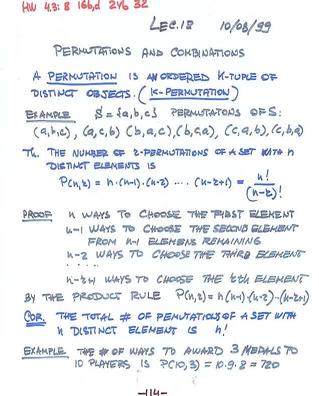 HW 4.3: 8 16b,d 24b 32
LEC.18 10/08/99
PERMUTATIONS AND COMBINATIONS
A PERMUTATION IS AN ORDERED K-TUPLE OF
DISTINCT OBJECTS. (K-PERMUTATION)
EXAMPLE S={a,b,c} PERMUTATIONS OF S:
(a,b,c), (a,c,b) (b,a,c), (b,c,a), (c,a,b), (c,b,a)
Th. THE NUMBER OF r-PERMUTATIONS OF A SET WITH n
DISTINCT ELEMENTS IS
P(n,r) = n·(n-1)·(n-2) ···· (n-r+1) = n!/(n-r)!
PROOF n WAYS TO CHOOSE THE FIRST ELEMENT
n-1 WAYS TO CHOOSE THE SECOND ELEMENT
FROM n-1 ELEMENS REMAINING
n-2 WAYS TO CHOOSE THE THIRD ELEMENT
.....
n-r+1 WAYS TO CHOOSE THE rth ELEMENT
BY THE PRODUCT RULE P(n,r) = n(n-1)·(n-2)··(n-r+1)
COR. THE TOTAL # OF PEMUTATIONS OF A SET WITH
n DISTINCT ELEMENT IS n!
EXAMPLE THE # OF WAYS TO AWARD 3 MEDALS TO
10 PLAYERS IS P(10,3) = 10·9·8 = 720
-114-